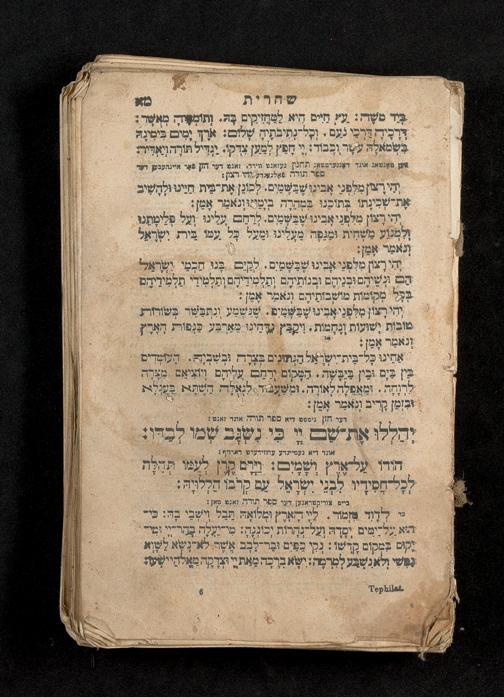 מא
שחרית
בְּיַד מֹשֶׁה: עֵץ חַיִּים הִיא לַמַּחֲזִיקִים בָּהּ. וְתוֹמְכֶיהָ מְאֻשָּׁר:
דְּרָכֶיהָ דַּרְכֵי נֹעַם. וְכָל־נְתִיבֹתֶיהָ שָׁלוֹם: אֹרֶךְ יָמִים בִּימִינָהּ
בִּשְׂמֹאלָהּ עֹשֶׁר וְכָבוֹד: יְיָ חָפֵץ לְמַעַן צִדְקוֹ. יַגְדִּיל תּוֹרָה וְיַאְדִּיר:
ספר תורה יהי רצון:
יְהִי רָצוֹן מִלִּפְנֵי אָבִינוּ שֶׁבַּשָּׁמַיִם. לְכוֹנֵן אֶת־בֵּית חַיֵּינוּ וּלְהָשִׁיב
אֶת־שְׁכִינָתוֹ בְּתוֹכֵנוּ בִּמְהֵרָה בְיָמֵינוּ וְנֹאמַר אָמֵן:
יְהִי רָצוֹן מִלִּפְנֵי אָבִינוּ שֶׁבַּשָּׁמַיִם. לְרַחֵם עָלֵינוּ וְעַל פְּלֵיטָתֵנוּ
וְלִמְנוֹעַ מַשְׁחִית וּמַגֵּפָה מֵעָלֵינוּ וּמֵעַל כָּל עַמּוֹ בֵּית יִשְׂרָאֵל
וְנֹאמַר אָמֵן:
יְהִי רָצוֹן מִלִּפְנֵי אָבִינוּ שֶׁבַּשָּׁמַיִם. לְקַיֵּם בָּנוּ חַכְמֵי יִשְׂרָאֵל
הֵם וּנְשֵׁיהֶם וּבְנֵיהֶם וּבְנוֹתֵיהֶם וְתַלְמִידֵיהֶם וְתַלְמִידֵי תַלְמִידֵיהֶם
בְּכָל מְקוֹמוֹת מוֹשְׁבוֹתֵיהֶם וְנֹאמַר אָמֵן:
יְהִי רָצוֹן מִלִּפְנֵי אָבִינוּ שֶׁבַּשָּׁמַיִם. שֶׁנִּשְׁמַע וְנִתְבַּשֵּׂר בְּשׂוֹרוֹת
טוֹבוֹת יְשׁוּעוֹת וְנֶחָמוֹת. וִיקַבֵּץ נִדָּחֵינוּ מֵאַרְבַּע כַּנְפוֹת הָאָרֶץ
וְנֹאמַר אָמֵן:
אַחֵינוּ כָּל־בֵּית־יִשְׂרָאֵל הַנְּתוּנִים בְּצָרָה וּבְשִׁבְיָה. הָעוֹמְדִים
בֵּין בַּיָּם וּבֵין בַּיַּבָּשָׁה. הַמָּקוֹם יְרַחֵם עֲלֵיהֶם וְיוֹצִיאֵם מִצָּרָה
לִרְוָחָה. וּמֵאֲפֵלָה לְאוֹרָה. וּמִשִּׁעְבּוּד לִגְאֻלָּה הַשְׁתָּא בַּעֲגָלָא
וּבִזְמַן קָרִיב וְנֹאמַר אָמֵן:
דער חזן נימט דיא ספר תורה אונד זאגט:
יְהַלְלוּ אֶת־שֵׁם יְיָ כִּי נִשְׂגָּב שְׁמוֹ לְבַדּוֹ:
אונד דיא געמיינדע ערווידערט דארויף:
הוֹדוֹ עַל־אֶרֶץ וְשָׁמָיִם: וַיָּרֶם קֶרֶן לְעַמּוֹ תְּהִלָּה
לְכָל־חֲסִידָיו לִבְנֵי יִשְׂרָאֵל עַם קְרֹבוֹ הַלְלוּיָהּ:
ביים צוריקטראגען דער ספר תורה זאגט מאן:
כד לְדָוִד מִזְמוֹר. לַיְיָ הָאָרֶץ וּמְלוֹאָהּ תֵּבֵל וְיֹשְׁבֵי בָהּ: כִּי־
הוּא עַל־יַמִּים יְסָדָהּ וְעַל־נְהָרוֹת יְכוֹנְנֶהָ: מִי־יַעֲלֶה בְהַר־יְיָ וּמִי־
יָקוּם בִּמְקוֹם קָדְשׁוֹ: נְקִי כַפַּיִם וּבַר־לֵבָב אֲשֶׁר לֹא־נָשָׂא לַשָּׁוְא
נַפְשִׁי וְלֹא נִשְׁבַּע לְמִרְמָה: יִשָּׂא בְרָכָה מֵאֵת יְיָ וּצְדָקָה מֵאֱלֹהֵי יִשְׁעוֹ:
6
Tephilat.